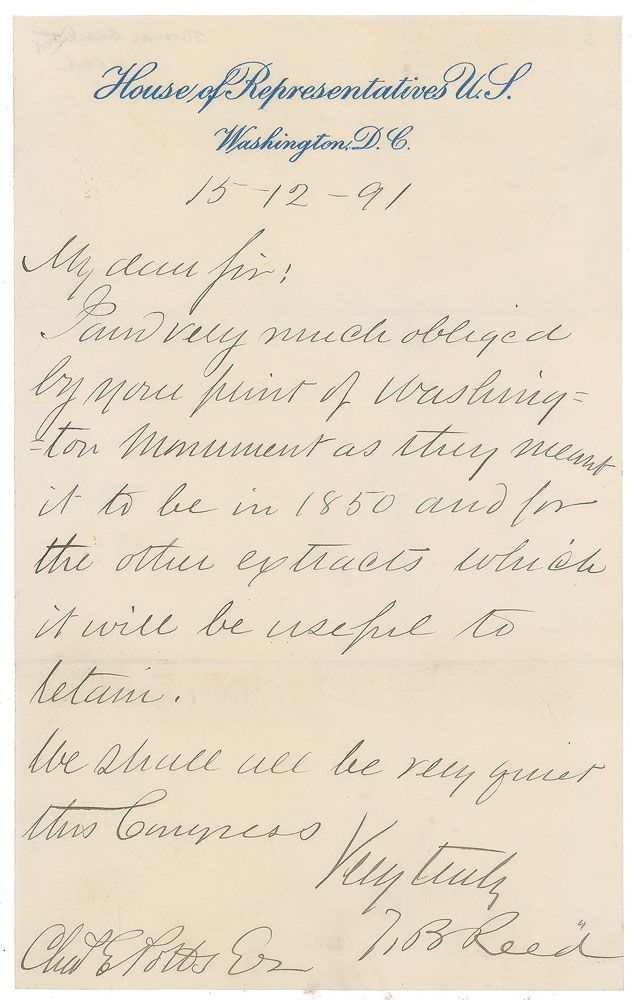 House of Representatives U.S.
Washington, D.C.
15-12-91
My dear Sir:
I am very much obliged
by your print of Washing=
=ton Monument as they meant
it to be in 1850 and for
the other extracts which
it will be useful to
retain.
We shall all be very quiet
this Congress
Very truly
T. B. Reed
Chas E Potts Esq